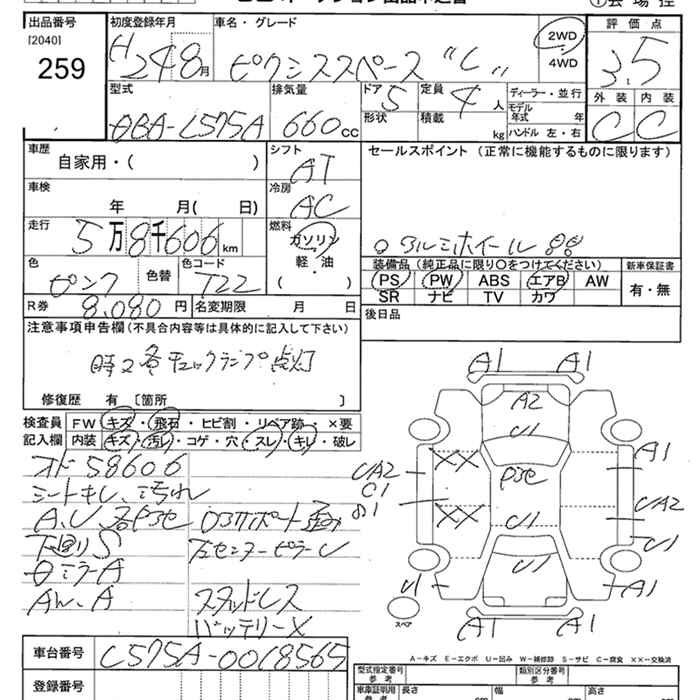 出品番号
[2040]
259
初度登録年月
H24 8月
車名・グレード
ピクシススペース "L"
2WD
4WD
評価点
3.5
外装 内装
C C
型式
DBA-L575A
排気量
660cc
ドア 5
形状
定員 4人
積載 kg
ディーラー・並行
モデル年式 年
ハンドル 左・右
車歴
自家用・( )
シフト
AT
セールスポイント (正常に機能するものに限ります)
車検
年 月( 日)
冷房
AC
走行
5万8千606km
燃料
ガソリン
軽・油
( )
アルミホイール
装備品 (純正品に限り○をつけてください)
PS PW ABS エアB AW
SR ナビ TV カワ
新車保証書
有・無
色
ピンク
色替
色コード
T22
R券 8,080円
名変期限 月 日
後日品
注意事項申告欄(不具合内容等は具体的に記入して下さい)
時々チェックランプ点灯
修復歴 有 [箇所 ]
検査員
記入欄
FW キズ・飛石・ヒビ割・リペア跡・×要
内装 キズ・汚レ・コゲ・穴・スレ・キレ・破レ
58606
シートキレ、汚れ
A、U
下廻りS
ミラーA
スタッドレス
バッテリーX
A1 A1
A2
U1
XX
P3セ
A1
UA2
C1
XX
U1
UA2
U1
U1
U1
A1
A1 A1
スペア
A-キズ E-エクボ U-凹み W-補修跡 S-サビ C-腐食 XX-交換済
車台番号
L575A-0018565
登録番号
型式指定番号
参考
類別区分番号
参考
車庫証明用
参考
長さ cm
幅 cm
高さ cm